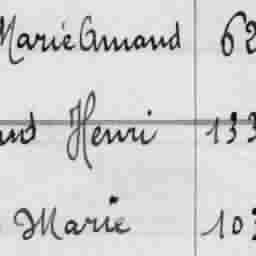 Marie Amand 62
Henri 133
Marie 103